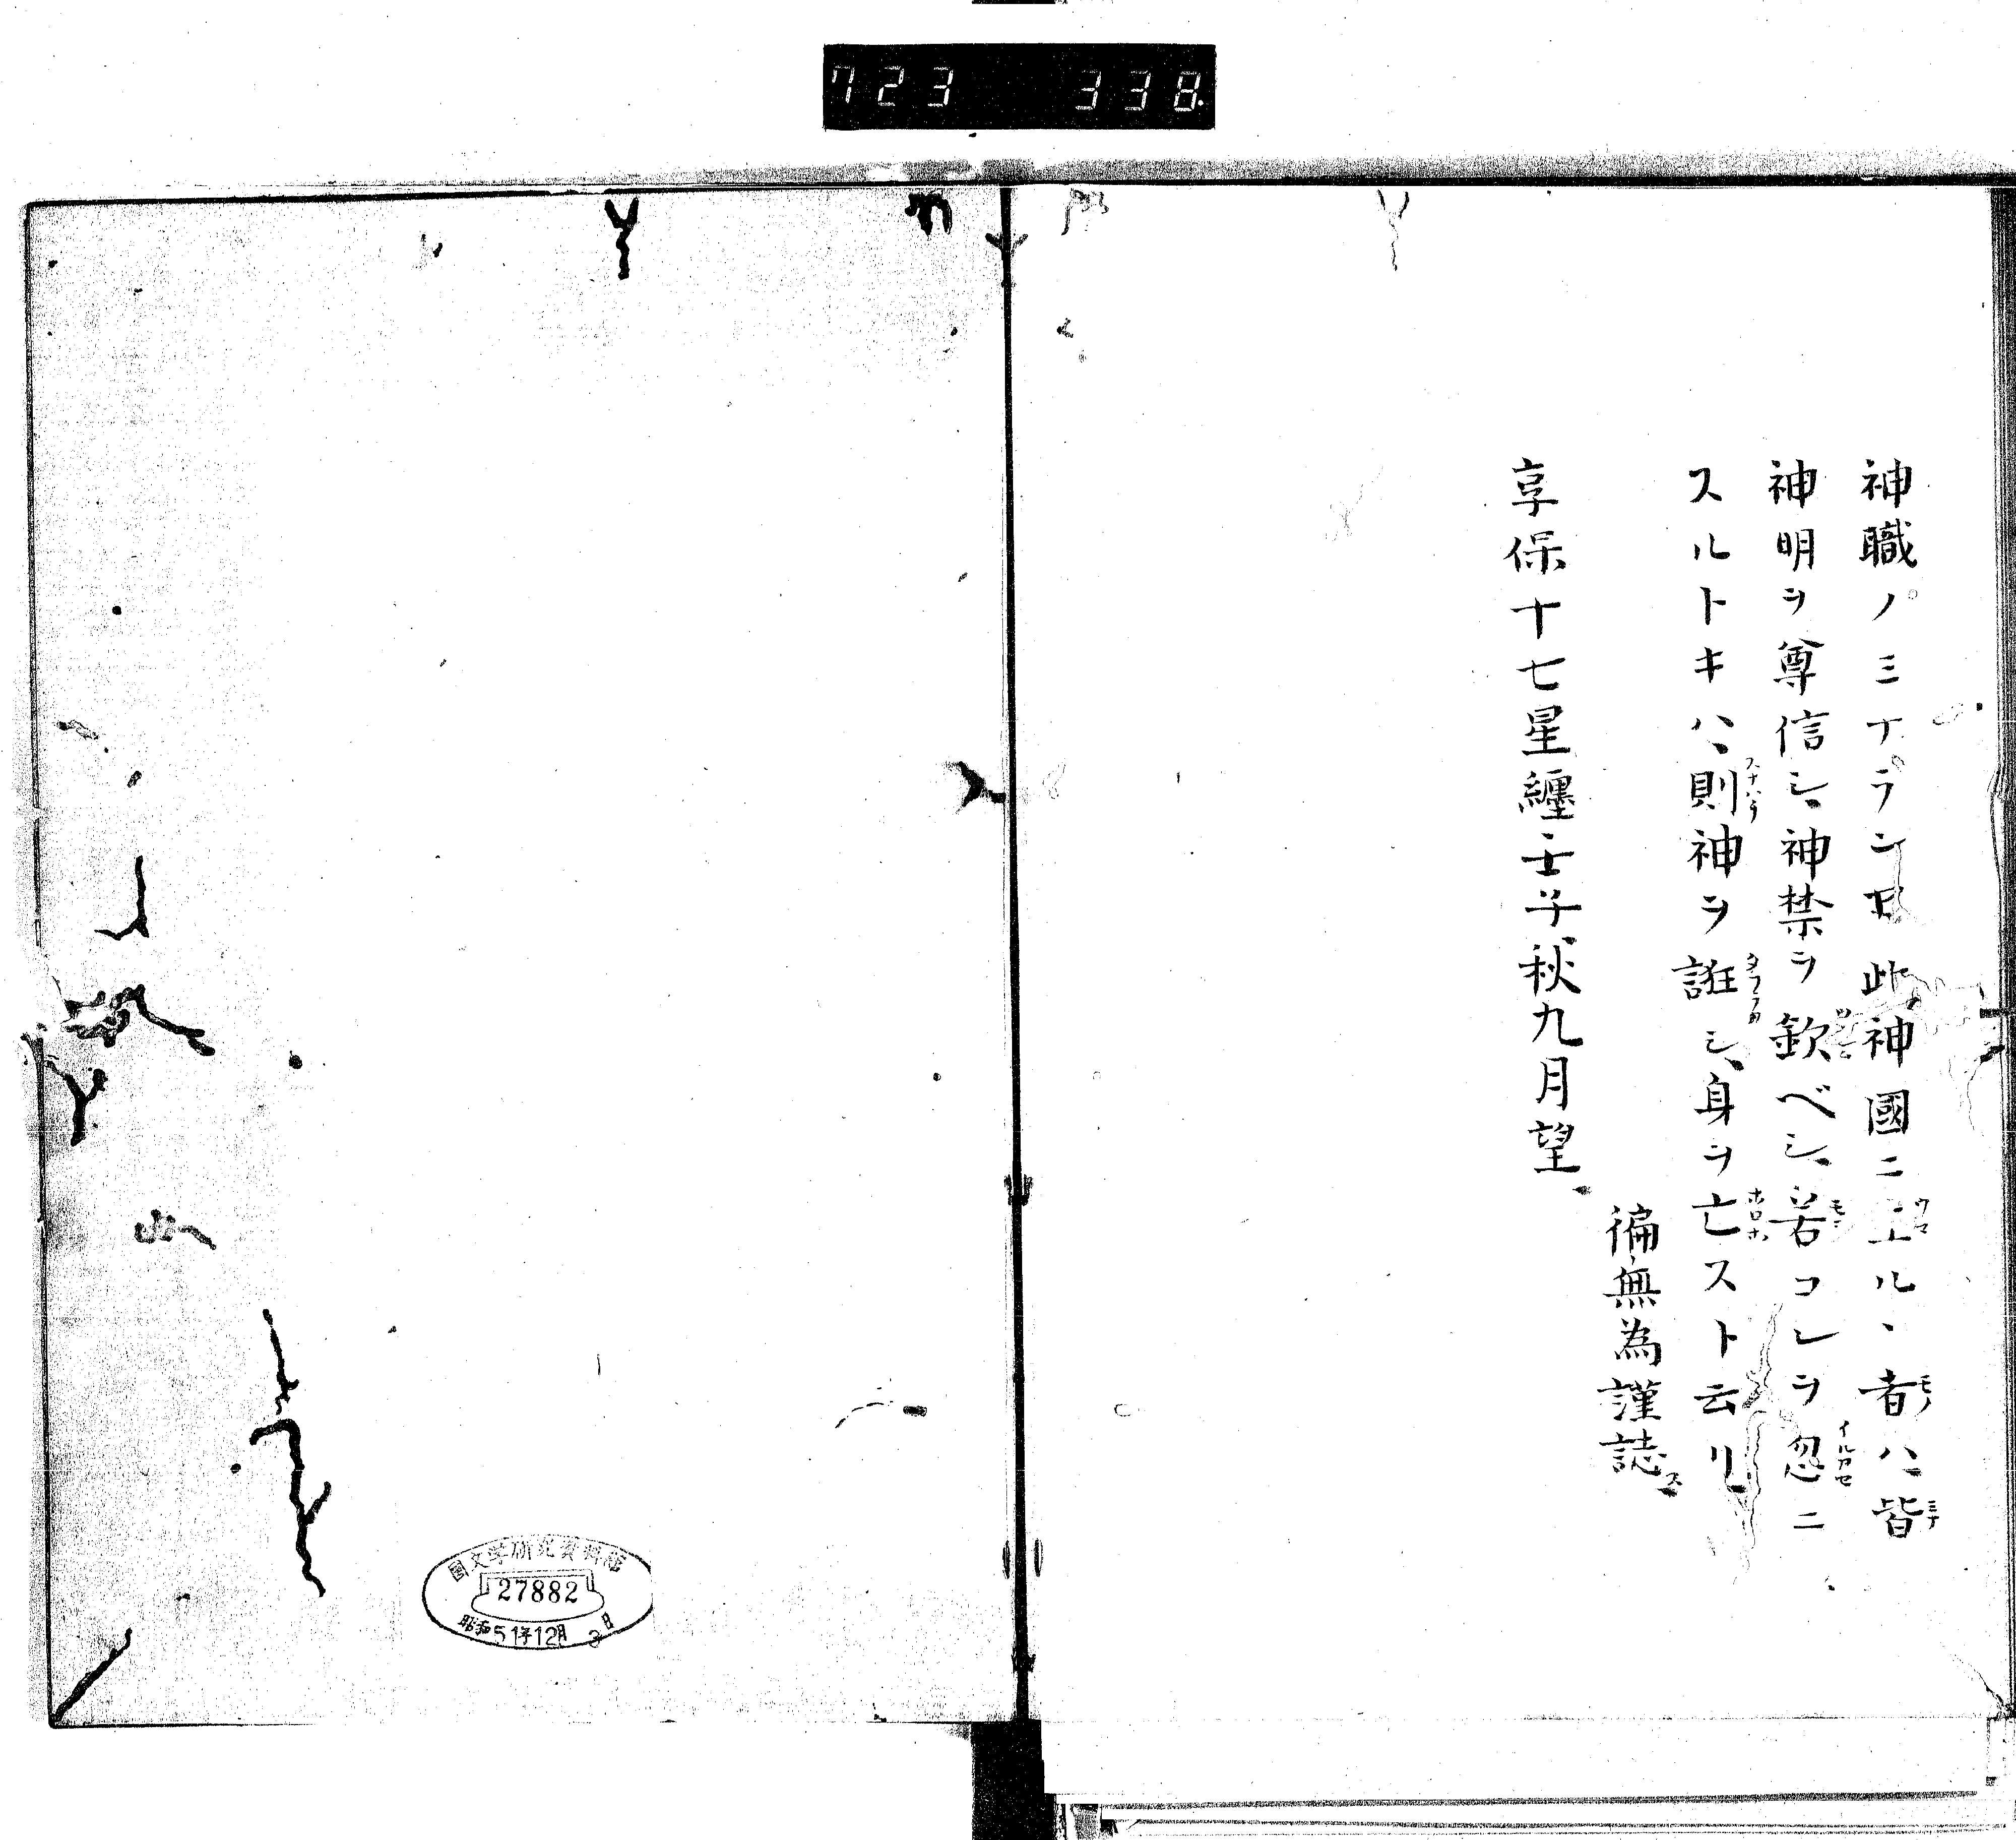 723 338
神職ノミナランヤ此神國ニ生ルヽ者ハ皆
神明ヲ尊信シ神禁ヲ欽ベシ若コレヲ忽ニ
スルトキハ則神ヲ誑シ身ヲ亡スト云リ
徧無為謹誌
享保十七星纏壬子秋九月望
國文学研究資料館
27882
昭和51年12月3日